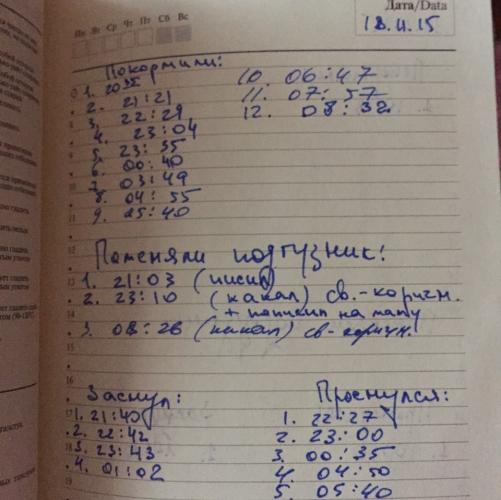 Пн Вт Ср Чт Пт Сб Вс
Дата/Data
18.11.15
Покормили:
1. 20:35
2. 21:21
3. 22:29
4. 23:04
5. 23:55
6. 00:40
7. 03:49
8. 04:55
9. 05:40
10. 06:47
11. 07:57
12. 08:32
Поменяли подгузник:
1. 21:03 (писил)
2. 23:10 (какал) св.-коричн.
+ написил на маму
3. 08:26 (какал) св-коричн.
Заснул:
1. 21:40
2. 22:42
3. 23:43
4. 01:02
Проснулся:
1. 22:27
2. 23:00
3. 00:35
4. 04:50
5. 05:40